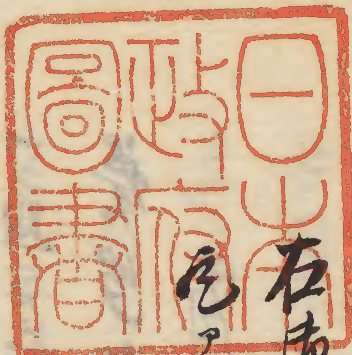 日本
政府
圖書
右